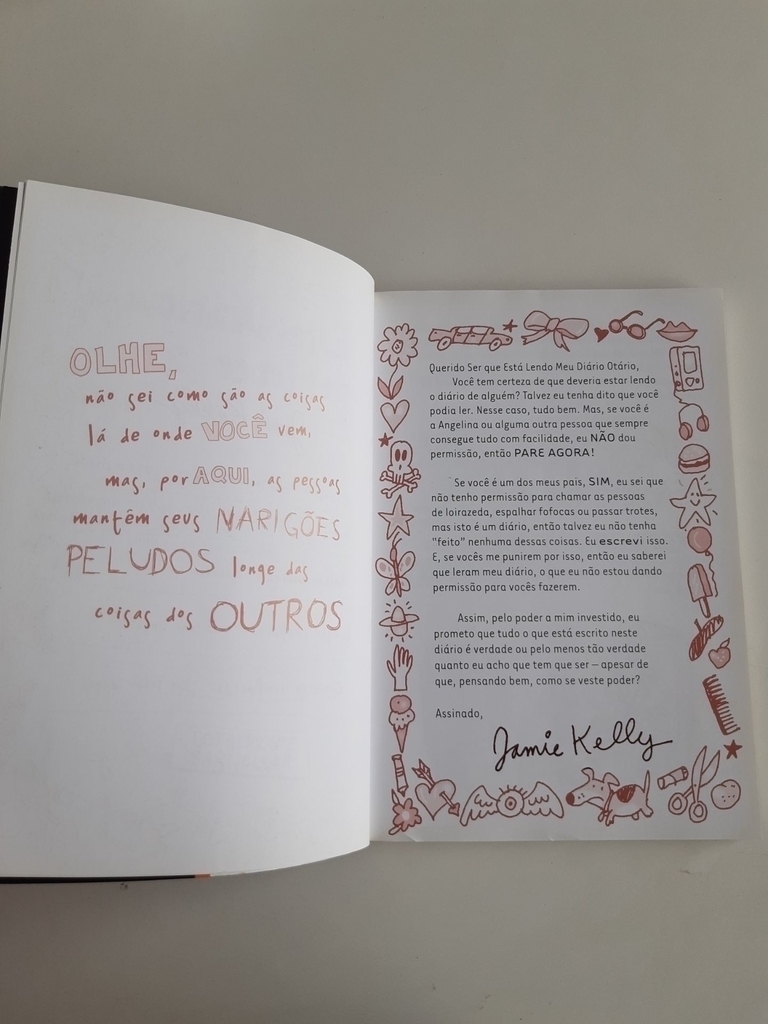 OLHE,
não sei como são as coisas
lá de onde VOCÊ vem,
mas, por AQUI, as pessoas
mantêm seus NARIGÕES
PELUDOS longe das
coisas dos OUTROS
Querido Ser que Está Lendo Meu Diário Otário,
Você tem certeza de que deveria estar lendo
o diário de alguém? Talvez eu tenha dito que você
podia ler. Nesse caso, tudo bem. Mas, se você é
a Angelina ou alguma outra pessoa que sempre
consegue tudo com facilidade, eu NÃO dou
permissão, então PARE AGORA!
Se você é um dos meus pais, SIM, eu sei que
não tenho permissão para chamar as pessoas
de loirazeda, espalhar fofocas ou passar trotes,
mas isto é um diário, então talvez eu não tenha
"feito" nenhuma dessas coisas. Eu escrevi isso.
E, se vocês me punirem por isso, então eu saberei
que leram meu diário, o que eu não estou dando
permissão para vocês fazerem.
Assim, pelo poder a mim investido, eu
prometo que tudo o que está escrito neste
diário é verdade ou pelo menos tão verdade
quanto eu acho que tem que ser – apesar de
que, pensando bem, como se veste poder?
Assinado,
Jamie Kelly